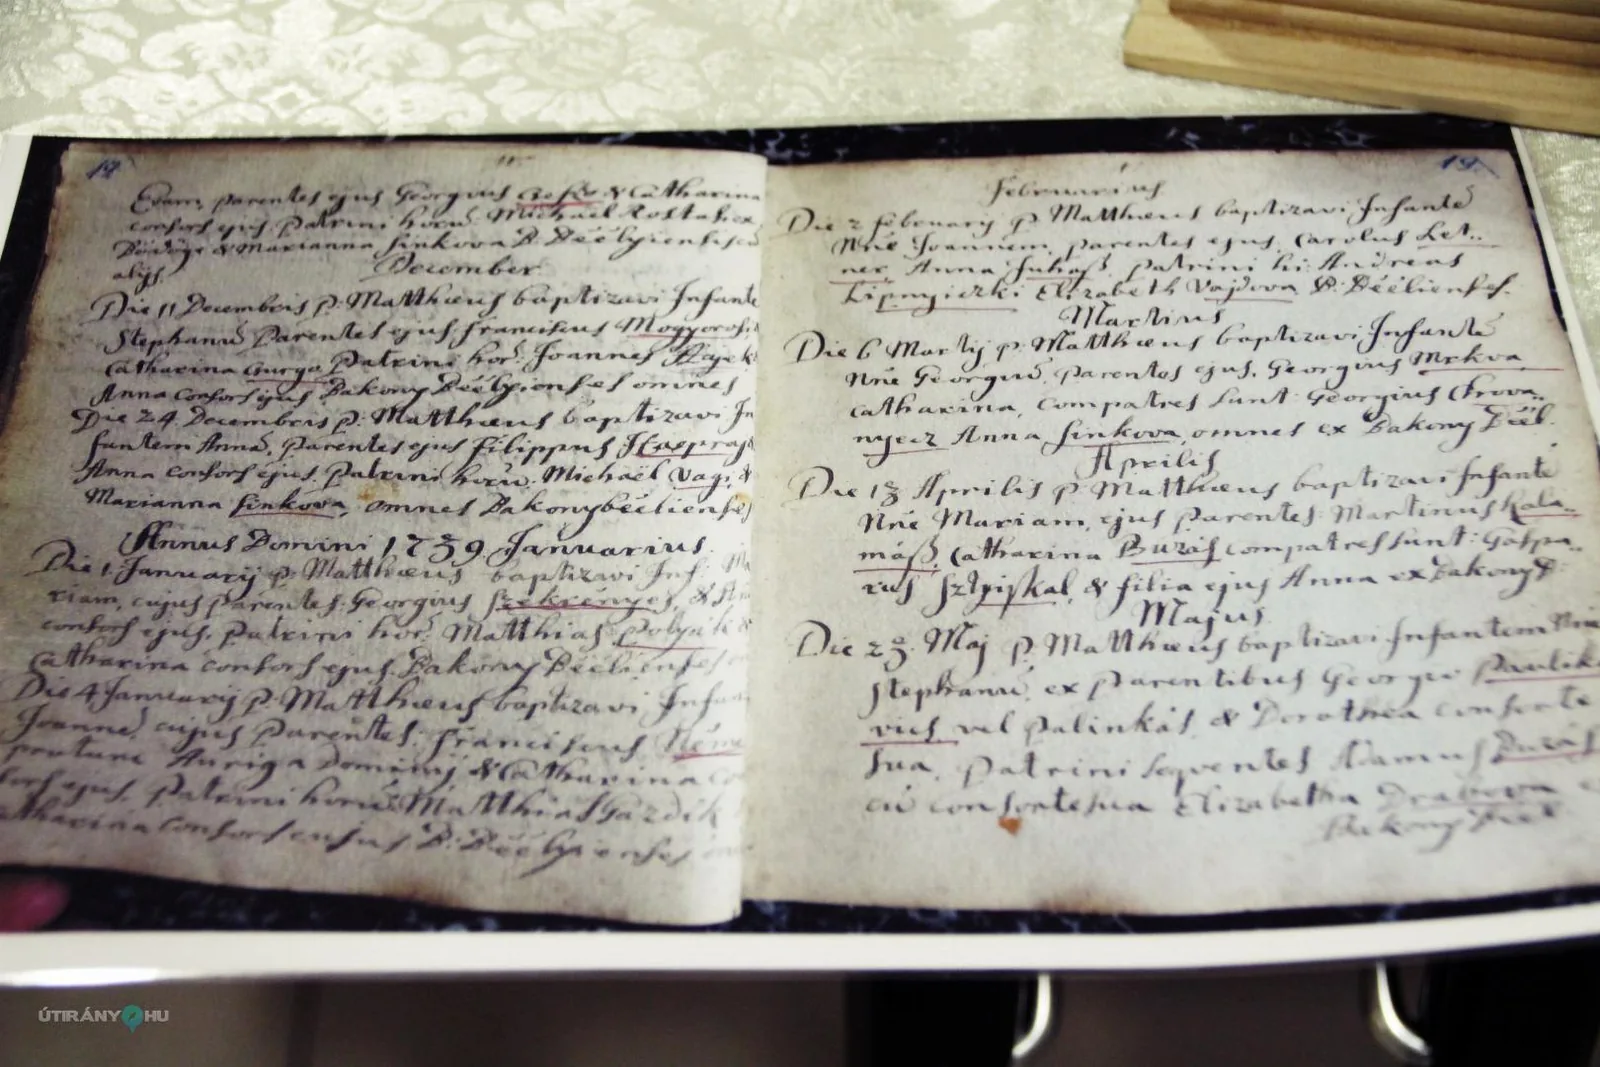 Evam, parentes ejus Georgius & Catharina
consors ejus, Patrini horũ Michael Rostas ex
& Marianna Sinkova B. Béélyienses
alijs.
December
Die 11 Decembris p. Matthæus baptizavi Infantẽ
Stephanũ Parentes ejus Franciscus Mogyorosi
Catharina Gurga Patrini hor: Joannes Hajek
Anna consors ejus Bakony Béélyienses omnes
Die 24 Decembris p. Matthæus baptizavi In
fantem Annã, Parentes ejus Filippus
Anna consors ejus, Patrini horũ Michaël Vagi, &
Marianna Sinkova, omnes Bakonybéélienses
Annus Domini 1739 Januarius.
Die 1 Januarij p. Matthæus baptizavi Inf: Ma
riam, cujus parentes: Georgius Szekrényes, &
consors ejus, Patrini hor: Matthias &
Catharina consors ejus. Bakony Béélienses
Die 4 Januarij p. Matthæus baptizavi Infan
Joannẽ, cujus Parentes: Franciscus Néme
Auriga Dominij & Catharina co
sors ejus, Patrini horũ Matthias Gazdik
tharina consors B. Béélyienses
19.
Februarius
Die 2 Februarij p. Matthæus baptizavi Infantẽ
Nñe Joannem, parentes ejus, Carolus Let..
ner, Anna Juhasz, patrini hi: Andreas
Lipnyiczki Elizabeth Vajdova B: Béélienses.
Martius
Die 6 Martij p. Matthæus baptizavi Infantẽ
Nñe Georgiũ, parentes ejus, Georgius Mrkva
Catharina, compatres sunt: Georgius Chrova..
nyecz Anna Sinkova, omnes ex Bakony Béél.
Aprilis
Die 13 Aprilis p Matthæus baptizavi Infantẽ
Nñe Mariam, ejus parentes: Martinus Kala..
mász, Catharina Buzás compatres sunt: Gaspa..
rus & filia ejus Anna ex Bakony B:
Majus
Die 23. Maj p. Matthæus baptizavi Infantem Nñe
Stephanũ, ex parentibus Georgio Paulik
vics vel Palinkás, & Dorothea consorte
sua, Patrini seqventes Adamus Buzás
cũ consorte sua Elizabetha Drabova
Bakony Beel
ÚTIRÁNY HU